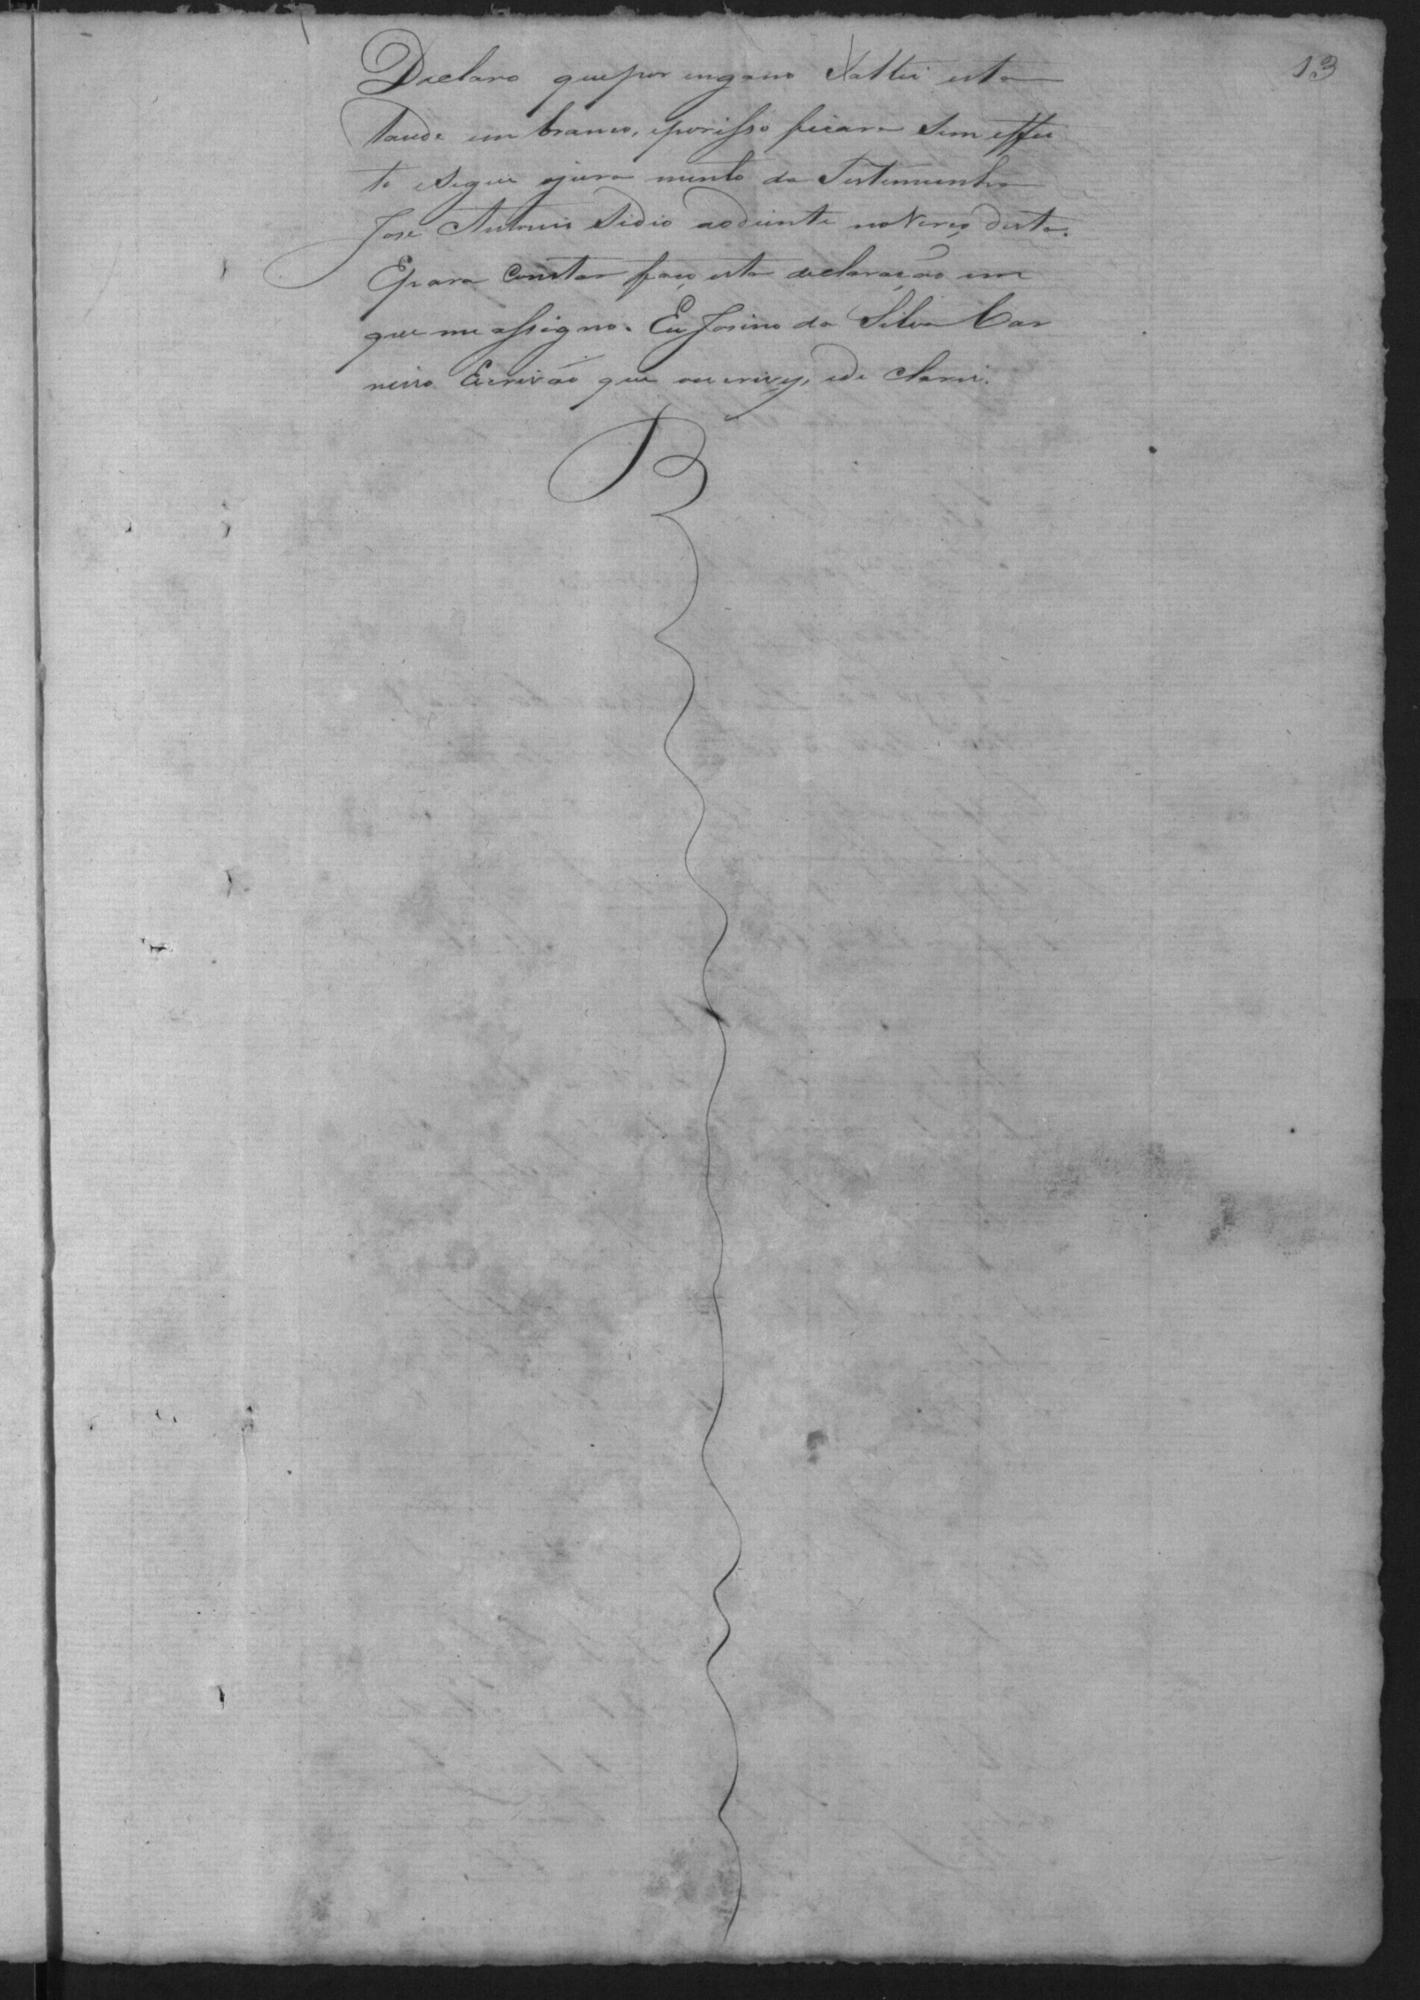 13
Declaro que por engano Saltei esta
lauda em branco, eporisso ficara Sem effei
to esegue ojura mento da Testemunha
José Antonio Sidio aodiante no Verço desta.
Epara Constar faço esta declaração em
que me assigno. Eu Josino da Silva Car
neiro Escrivão que escrevy, ede clarei.